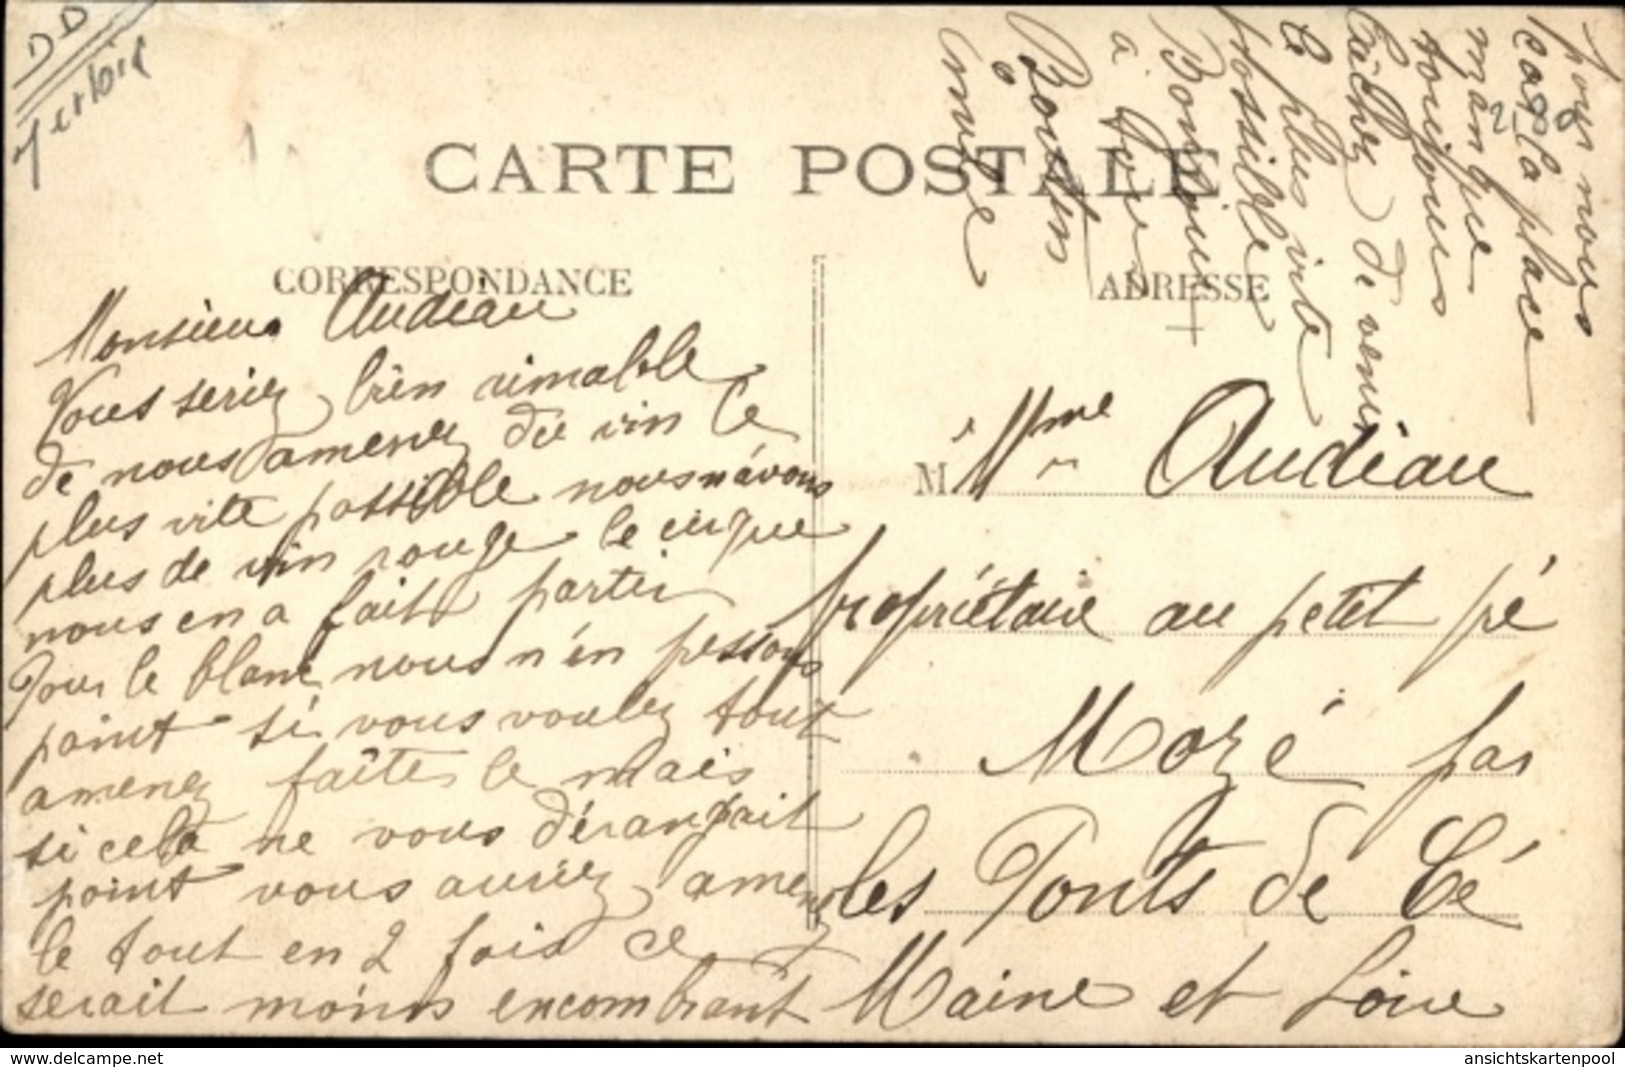 CARTE POSTALE
CORRESPONDANCE
Monsieur Audiau
Vous seriez bien aimable
de nous amener du vin le
plus vite possible nous n'avons
plus de vin rouge le cirque
nous en a fait partir
Pour le blanc nous n'en pressons
point si vous voulez tout
amenez faites le mais
si cela ne vous dérangeait
point vous auriez amenez
le tout en 2 fois ce
serait moins encombrant
pour nous
car la place
manque
toujours
Tâchez de venir
le plus vite
possible
Bonjour
à tous
Boutin
ADRESSE
M Mme Audiau
propriétaire au petit pé
Mozé par
les Ponts de Cé
Maine et Loire
www.delcampe.net
ansichtskartenpool